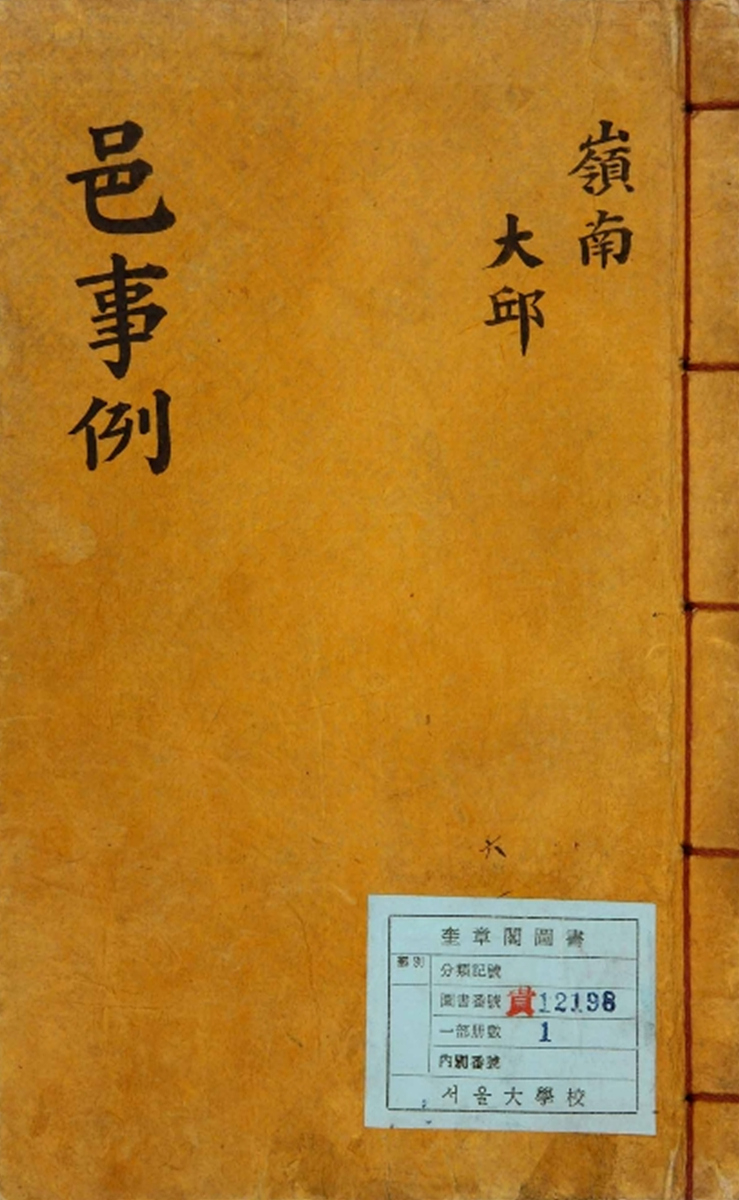 嶺南
大邱
邑事例
奎章閣圖書
部別
分類記號
圖書番號 貴12198
一部冊數 1
內別番號
서울大學校